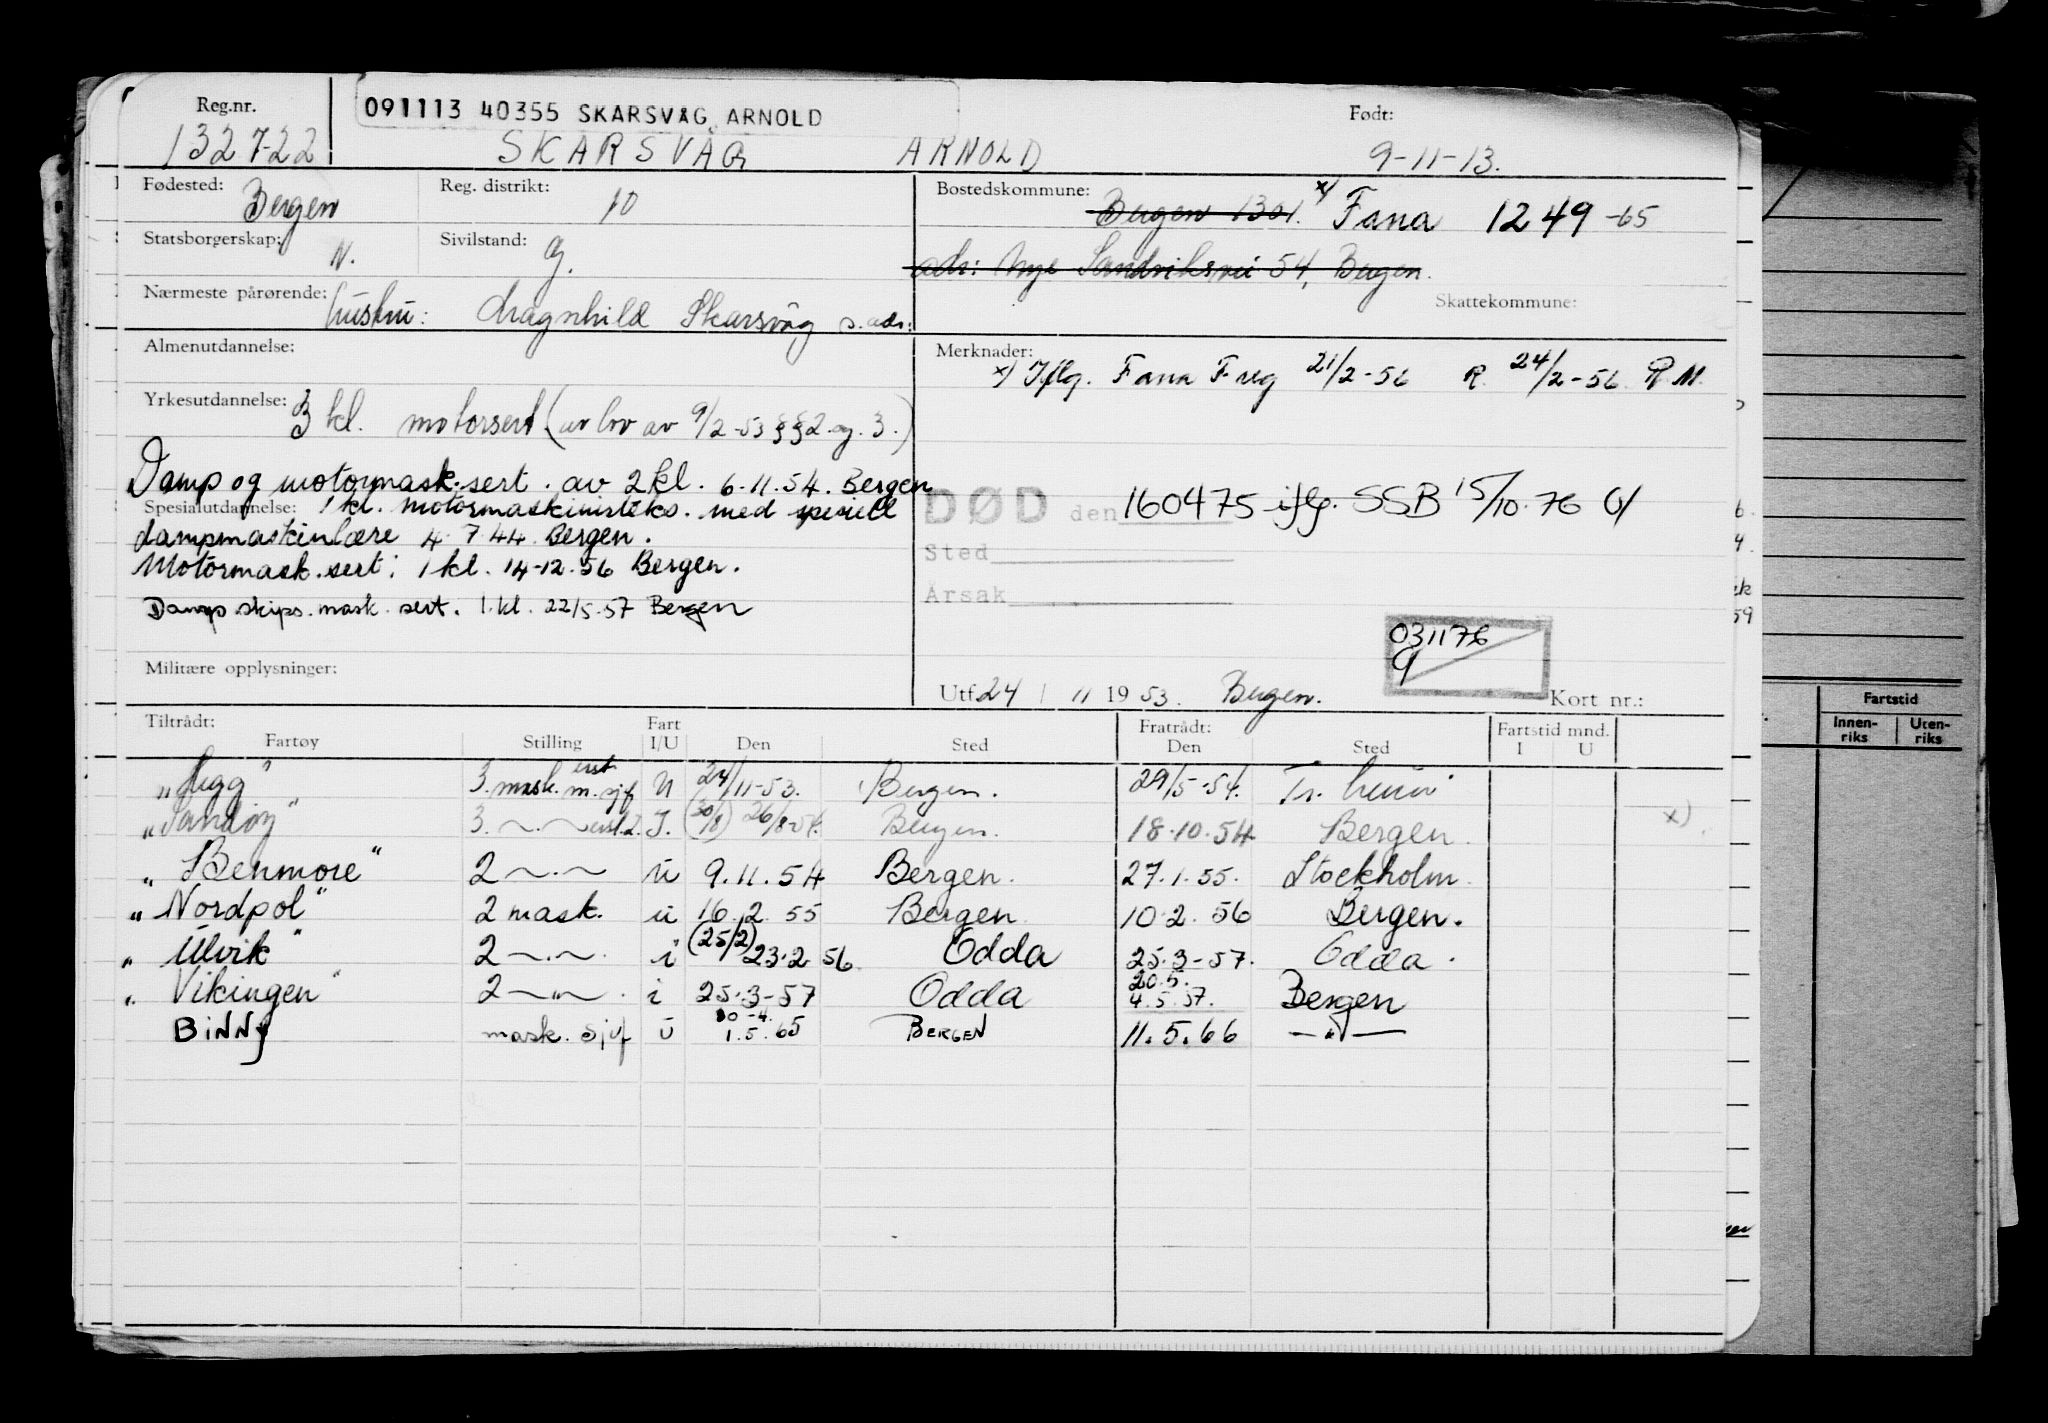 Reg.nr. 091113 40355 SKARSVÅG, ARNOLD Født:
132722 SKARSVÅG ARNOLD 9-11-13.
Fødested: Bergen Reg. distrikt: 10 Bostedskommune: Bergen 1301. x) Fana 1249-65
Statsborgerskap: N. Sivilstand: g. adr: Nye Sandviksvei 54, Bergen.
Nærmeste pårørende: hustru: Dragnhild Skarsvåg s. adr. Skattekommune:
Almenutdannelse: Merknader:
x) Iflg. Fana F reg 21/2-56 R. 24/2-56 R.M.
Yrkesutdannelse: 3 kl. motorsert (av lov av 9/2-53 §§2 og 3.)
Damp og motormask.sert. av 2 kl. 6-11.54. Bergen
Spesialutdannelse: 1 kl. motormaskinisteks. med spesiell
DØD den 160475 iflg. SSB 15/10.76
dampmaskinlære 4.7.44. Bergen.
Sted
Motormask.sert: 1 kl. 14-12.56 Bergen.
Årsak
Damp skips. mask. sert. 1. kl. 22/5.57 Bergen
031176
9
Militære opplysninger:
Utf. 24 / 11 1953. Bergen. Kort nr.:
Tiltrådt: Fart Fratrådt: Fartstid mnd.
Fartøy Stilling I/U Den Sted Den Sted I U
3. mask. m. sjf U 24/11-53. Bergen. 29/5-54.
"Sandøy" 3. I. (30/8) 26/8-54. Bergen. 18.10.54 Bergen x)
"Benmore" 2 ~.~ u 9.11.54 Bergen. 27.1.55. Stockholm.
"Nordpol" 2 mask. u 16.2.55 Bergen 10.2.56 Bergen.
"Ulvik" 2 ~.~. i (25/2) 23.2.56 Odda 25.3-57. Odda.
"Vikingen" 2 ~"~. i 25.3-57 Odda 20.5. 4.5.57. Bergen
BINNY mask. sjef u 30-4. 1.5.65 BERGEN 11.5.66 —"—
Fartstid
Innen-
riks
Uten-
riks